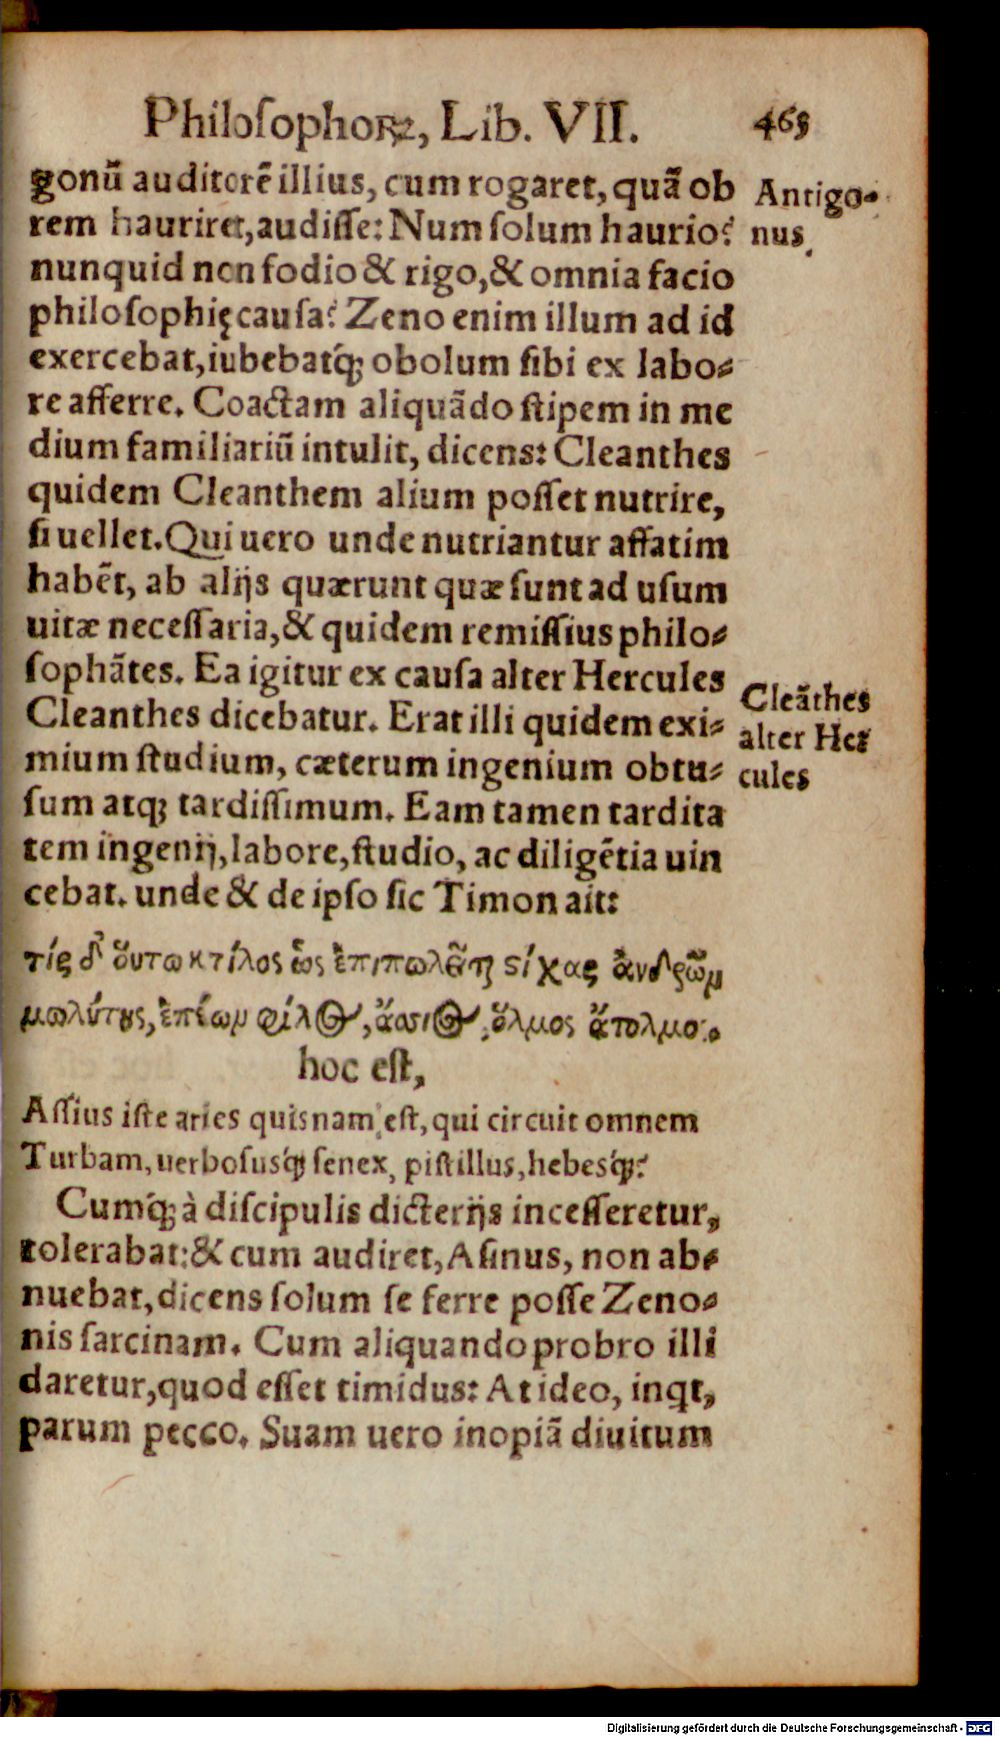 Philosophoꝝ, Lib. VII. 465
gonū auditorē illius, cum rogaret, quã ob
rem hauriret, audisse: Num solum haurio?
nunquid non fodio & rigo, & omnia facio
philosophię causa? Zeno enim illum ad id
exercebat, iubebatq́; obolum sibi ex labo-
re afferre. Coactam aliquãdo stipem in me
dium familiariū intulit, dicens: Cleanthes
quidem Cleanthem alium posset nutrire,
si uellet. Qui uero unde nutriantur affatim
habẽt, ab alijs quærunt quæ sunt ad usum
uitæ necessaria, & quidem remissius philo-
sophãtes. Ea igitur ex causa alter Hercules
Cleanthes dicebatur. Erat illi quidem exi-
mium studium, cæterum ingenium obtu-
sum atq; tardissimum. Eam tamen tardita
tem ingenij, labore, studio, ac diligẽtia uin
cebat. unde & de ipso sic Timon ait:
τίς δ' ὅυτω κτίλος ὣς ἐπιπωλεῖται στίχας ἀνδρῶν
μωλύτης, ἐπέων φίλος, ἄσσιος, ὅλμος ἄτολμος.
hoc est,
Assius iste aries quisnam est, qui circuit omnem
Turbam, uerbosusq́; senex, pistillus, hebesq́;?
Cumq́; à discipulis dicterijs incesseretur,
tolerabat: & cum audiret, Asinus, non ab-
nuebat, dicens solum se ferre posse Zeno-
nis sarcinam. Cum aliquando probro illi
daretur, quod esset timidus: At ideo, inqt,
parum pecco. Suam uero inopiã diuitum
Antigo-
nus
Cleãthes
alter Her
cules
Digitalisierung gefördert durch die Deutsche Forschungsgemeinschaft - DFG